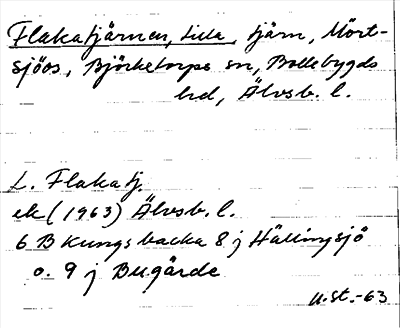 Flakatjärnen, Lilla, tjärn, Mört-
sjöos, Björketorps sn, Bollebygds
hd, Älvsb. l.
L. Flakatj.
ek (1963) Älvsb. l.
6 B Kungsbacka 8 j Hällingsjö
o. 9 j Bugärde
U.St.-63